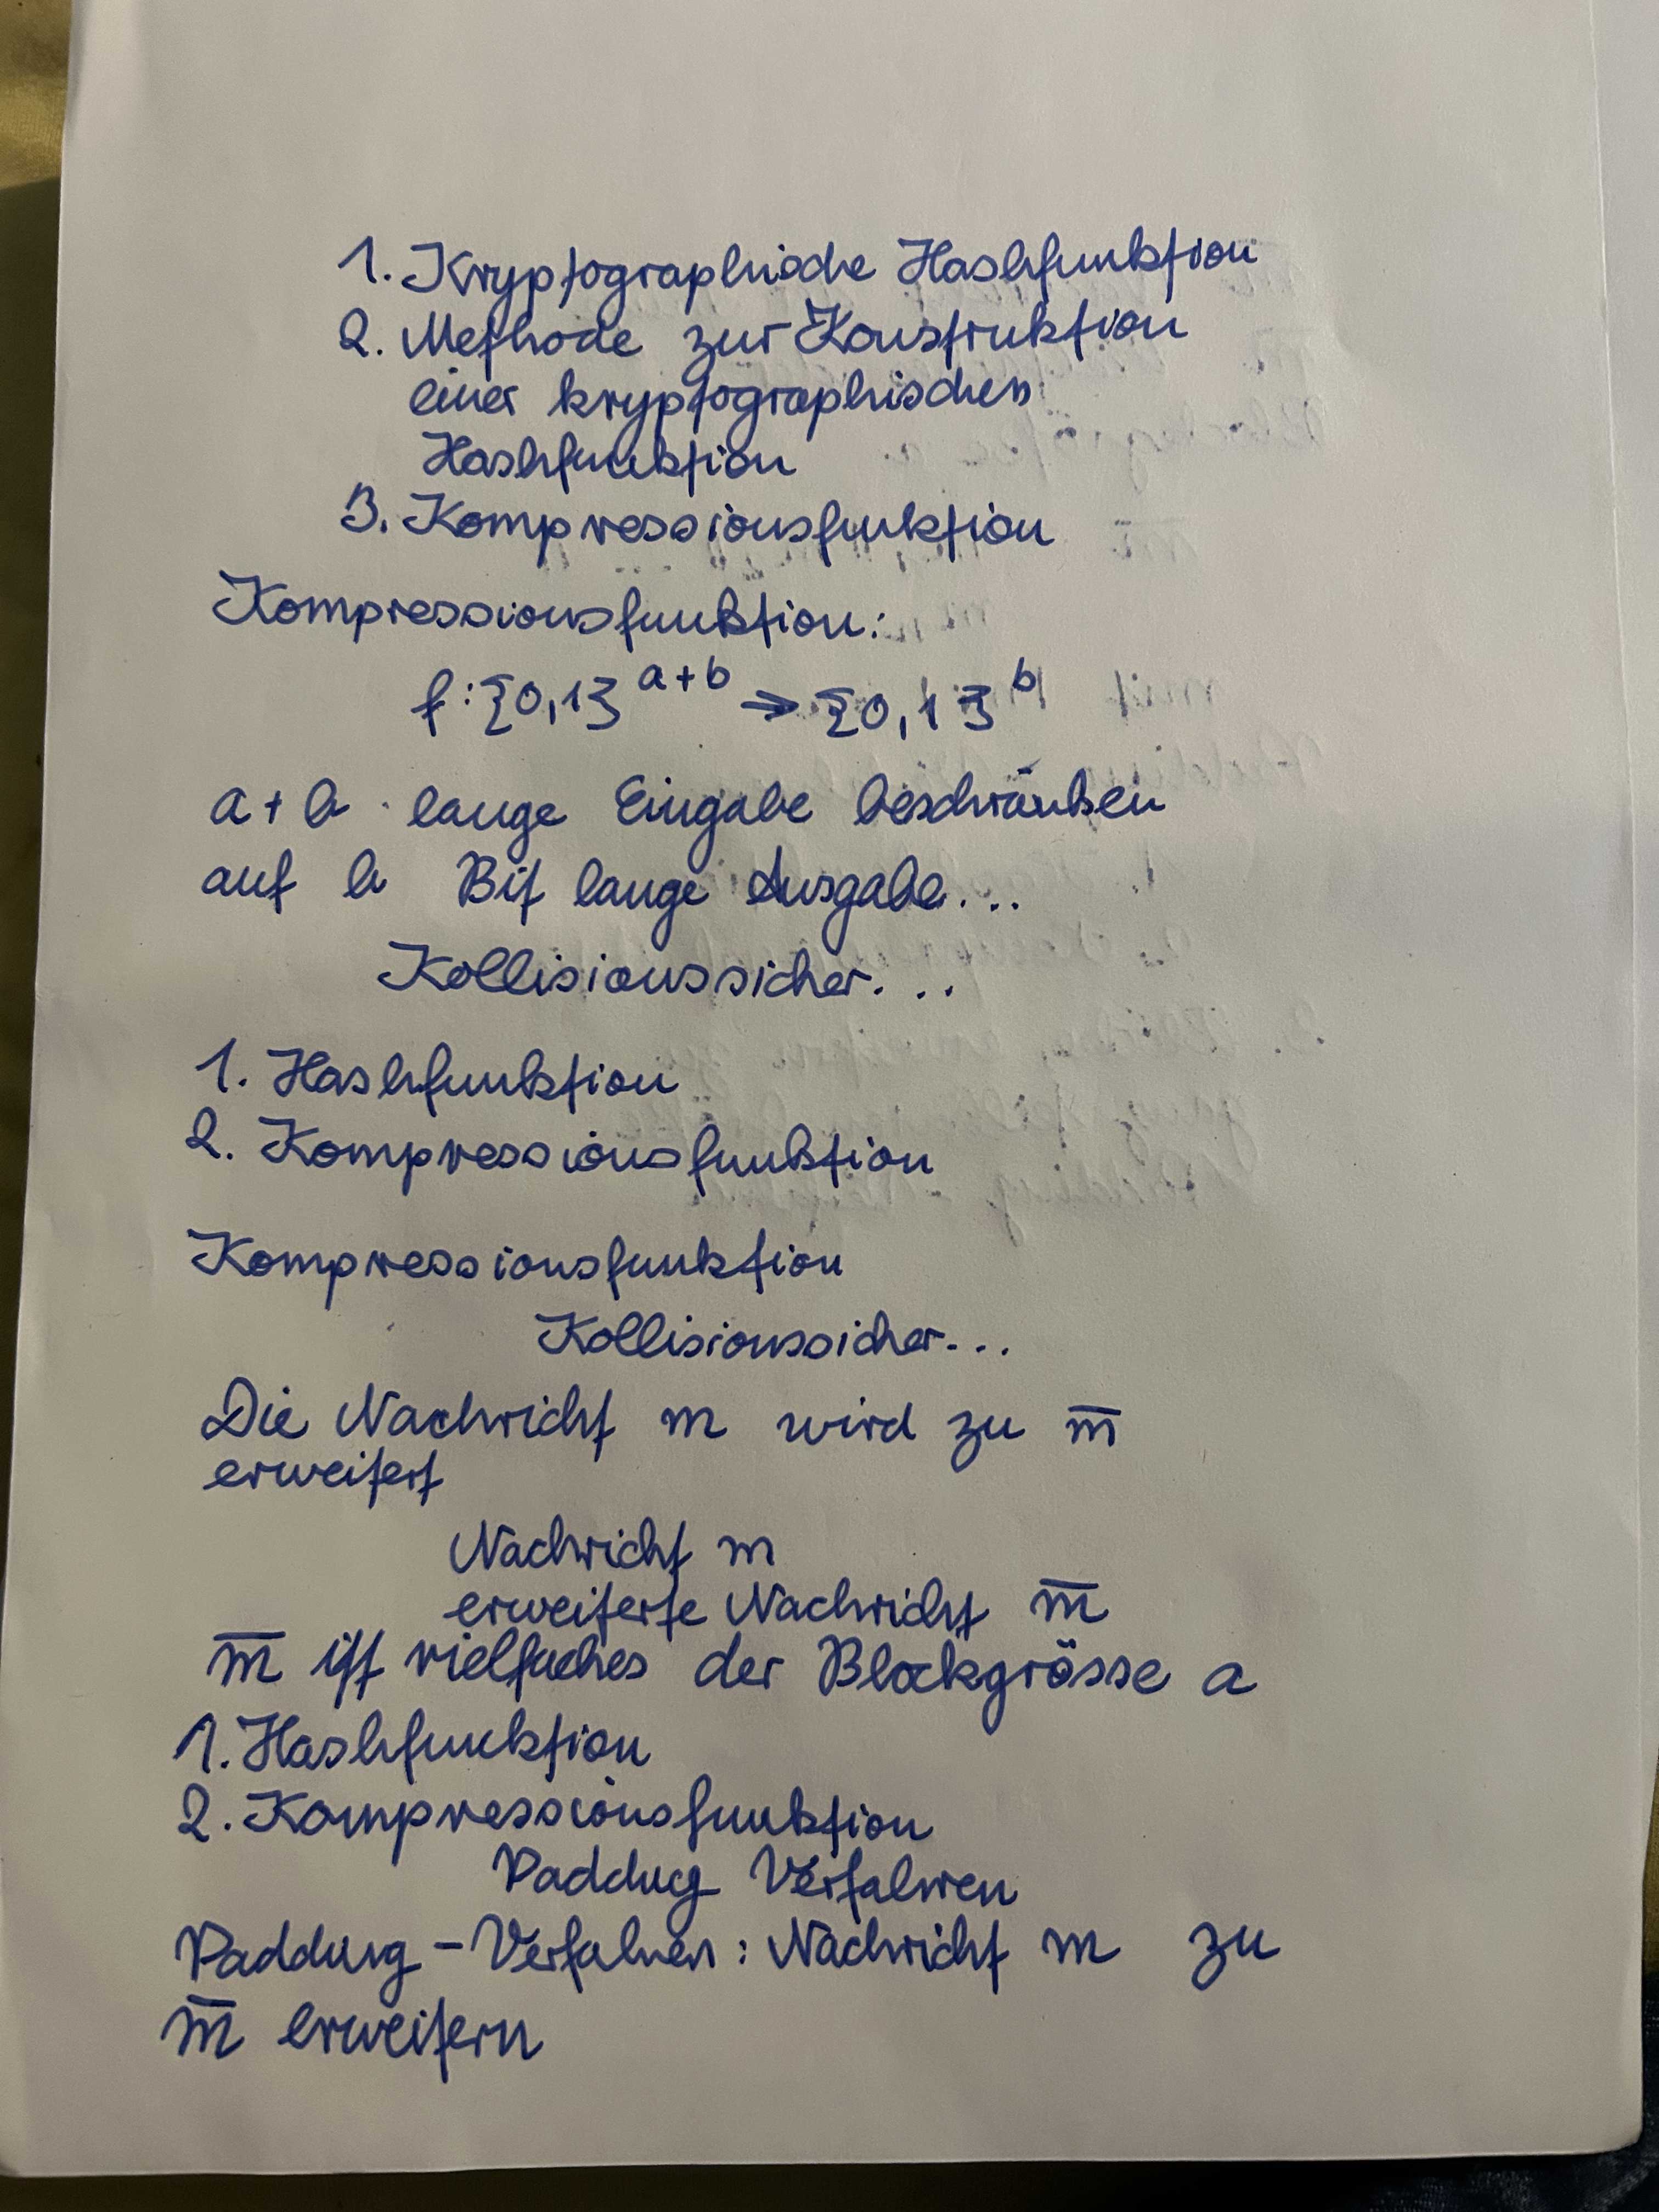 1. Kryptographische Hashfunktion
2. Methode zur Konstruktion
einer kryptographischen
Hashfunktion
3. Kompressionsfunktion
Kompressionsfunktion:
f: {0,1}^a+b → {0,1}^b
a+b lange Eingabe beschränken
auf b Bit lange Ausgabe...
Kollisionssicher...
1. Hashfunktion
2. Kompressionsfunktion
Kompressionsfunktion
Kollisionssicher...
Die Nachricht m wird zu m̅
erweitert
Nachricht m
erweiterte Nachricht m̅
m̅ ist vielfaches der Blockgrösse a
1. Hashfunktion
2. Kompressionsfunktion
Padding Verfahren
Padding-Verfahren: Nachricht m zu
m̅ erweitern